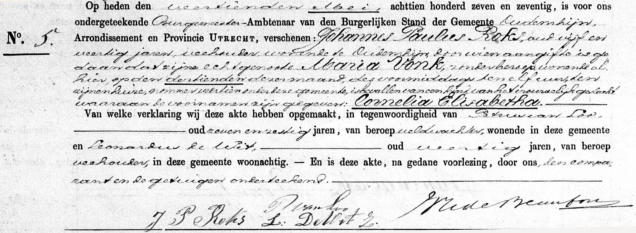 Op heden den veertienden Mei, achttien honderd zeven en zeventig, is voor ons
ondergeteekende Burgemeester-Ambtenaar van den Burgerlijken Stand der Gemeente Oudenrhijn,
Nº. 5. Arrondissement en Provincie UTRECHT, verschenen: Johannes Paulus Roks, oud vijf en
veertig jaren, veehouder, wonende te Oudenrhijn, door wien aangifte is ge-
daan dat zijne echtgenoote Maria Vonk, zonder beroep, wonende al-
hier, op den dertienden dezer maand, des voormiddags ten elf ure, ten
zijnen huize, nommer veertien in deze gemeente, is bevallen van een kind van het vrouwelijk geslacht
waaraan de voornamen zijn gegeven: Cornelia Elisabetha.
Van welke verklaring wij deze akte hebben opgemaakt, in tegenwoordigheid van P. van Loo
oud zeven en zestig jaren, van beroep veldwachter, wonende in deze gemeente
en Leonardus de Wit, oud veertig jaren, van beroep
veehouder, in deze gemeente woonachtig. — En is deze akte, na gedane voorlezing, door ons, den compa-
rant en de getuigen onderteekend.
J P Roks P van Loo
L. De Wit